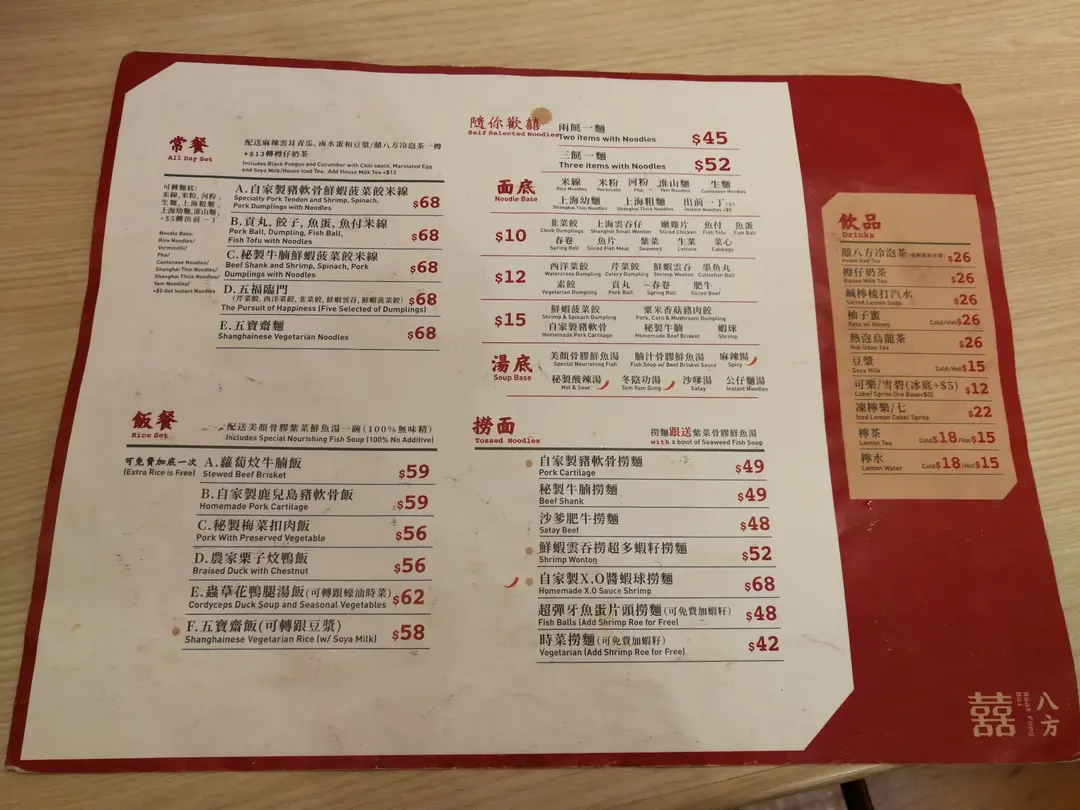 常餐
All Day Set
配送麻辣雲耳青瓜、鹵水蛋和豆漿/囍八方冷泡茶一樽
+$13轉樽仔奶茶
Includes Black Fungus and Cucumber with Chili sauce, Marinated Egg
and Soya Milk/House Iced Tea. Add House Milk Tea +$13
可轉麵底:
米線,米粉,河粉,
生麵,上海粗麵,
上海幼麵,淮山麵,
+$5轉出前一丁
Noodle Base:
Rice Noodles/
Vermicelli/
Pho/
Cantonese Noodles/
Shanghai Thin Noodles/
Shanghai Thick Noodles/
Yam Noodles/
+$5 Got Instant Noodles
A.自家製豬軟骨鮮蝦菠菜餃米線
Specialty Pork Tendon and Shrimp, Spinach,
Pork Dumplings with Noodles
$68
B.貢丸, 餃子, 魚蛋, 魚付米線
Pork Ball, Dumpling, Fish Ball,
Fish Tofu with Noodles
$68
C.秘製牛腩鮮蝦菠菜餃米線
Beef Shank and Shrimp, Spinach, Pork
Dumplings with Noodles
$68
D.五福臨門
(芹菜餃, 西洋菜餃, 韭菜餃, 鮮蝦雲吞, 鮮蝦菠菜餃)
The Pursuit of Happiness (Five Selected of Dumplings)
$68
E.五寶齋麵
Shanghainese Vegetarian Noodles
$68
隨你歡囍
Self Selected Noodles
兩餸一麵
Two items with Noodles
$45
三餸一麵
Three items with Noodles
$52
面底
Noodle Base
米線 米粉 河粉 淮山麵 生麵
Rice Noodles Vermicelli Pho Yam Noodles Cantonese Noodles
上海幼麵 上海粗麵 出前一丁+$5
Shanghai Thin Noodles Shanghai Thick Noodles Instant Noodles +$5
$10
韭菜餃 上海雲吞仔 嫩雞片 魚付 魚蛋
Chive Dumplings Shanghai Small Wonton Sliced Chicken Fish Tofu Fish Ball
春卷 魚片 紫菜 生菜 菜心
Spring Roll Sliced Fish Meat Seaweed Lettuce Cabbage
$12
西洋菜餃 芹菜餃 鮮蝦雲吞 墨魚丸
Watercress Dumpling Celery Dumpling Shrimp Wonton Cuttlefish Ball
素餃 貢丸 春卷 肥牛
Vegetarian Dumpling Pork Ball Spring Roll Sliced Beef
$15
鮮蝦菠菜餃 粟米香菇豬肉餃
Shrimp & Spinach Dumpling Pork, Corn & Mushroom Dumpling
自家製豬軟骨 秘製牛腩 蝦球
Homemade Pork Cartilage Homemade Beef Brisket Shrimp
湯底
Soup Base
美顏骨膠鮮魚湯 腩汁骨膠鮮魚湯 麻辣湯
Special Nourishing Fish Fish Soup w/ Beef Brisket Sauce Spicy
秘製酸辣湯 冬陰功湯 沙嗲湯 公仔麵湯
Hot & Sour Tom Yum Gung Satay Instant Noodles
飯餐
Rice Set
配送美顏骨膠紫菜鮮魚湯一碗(100%無味精)
Includes Special Nourishing Fish Soup (100% No Additive)
可免費加底一次
(Extra Rice is Free)
A.蘿蔔炆牛腩飯
Stewed Beef Brisket
$59
B.自家製鹿兒島豬軟骨飯
Homemade Pork Cartilage
$59
C.秘製梅菜扣肉飯
Pork With Preserved Vegetable
$56
D.農家栗子炆鴨飯
Braised Duck with Chestnut
$56
E.蟲草花鴨腿湯飯(可轉跟蠔油時菜)
Cordyceps Duck Soup and Seasonal Vegetables
$62
F.五寶齋飯(可轉跟豆漿)
Shanghainese Vegetarian Rice (w/ Soya Milk)
$58
撈面
Tossed Noodles
撈麵跟送紫菜骨膠鮮魚湯
with a bowl of Seaweed Fish Soup
自家製豬軟骨撈麵
Pork Cartilage
$49
秘製牛腩撈麵
Beef Shank
$49
沙爹肥牛撈麵
Satay Beef
$48
鮮蝦雲吞撈超多蝦籽撈麵
Shrimp Wonton
$52
自家製X.O醬蝦球撈麵
Homemade X.O Sauce Shrimp
$68
超彈牙魚蛋片頭撈麵(可免費加蝦籽)
Fish Balls (Add Shrimp Roe for Free)
$48
時菜撈麵(可免費加蝦籽)
Vegetarian (Add Shrimp Roe for Free)
$42
飲品
Drinks
囍八方冷泡茶
House Iced Tea
$26
樽仔奶茶
House Milk Tea
$26
鹹檸梳打汽水
Salted Lemon Soda
$26
柚子蜜
Yuzu w/ Honey
Cold/Hot $26
熱泡烏龍茶
Hot Udon Tea
$26
豆漿
Soya Milk
Cold/Hot $15
可樂/雪碧(冰底+$5)
Coke/ Sprite (Ice Base+$5)
$12
凍檸樂/七
Iced Lemon Coke/ Sprite
$22
檸茶
Lemon Tea
Cold $18/Hot $15
檸水
Lemon Water
Cold $18/Hot $15
囍
Huat Fong
Hei
八方